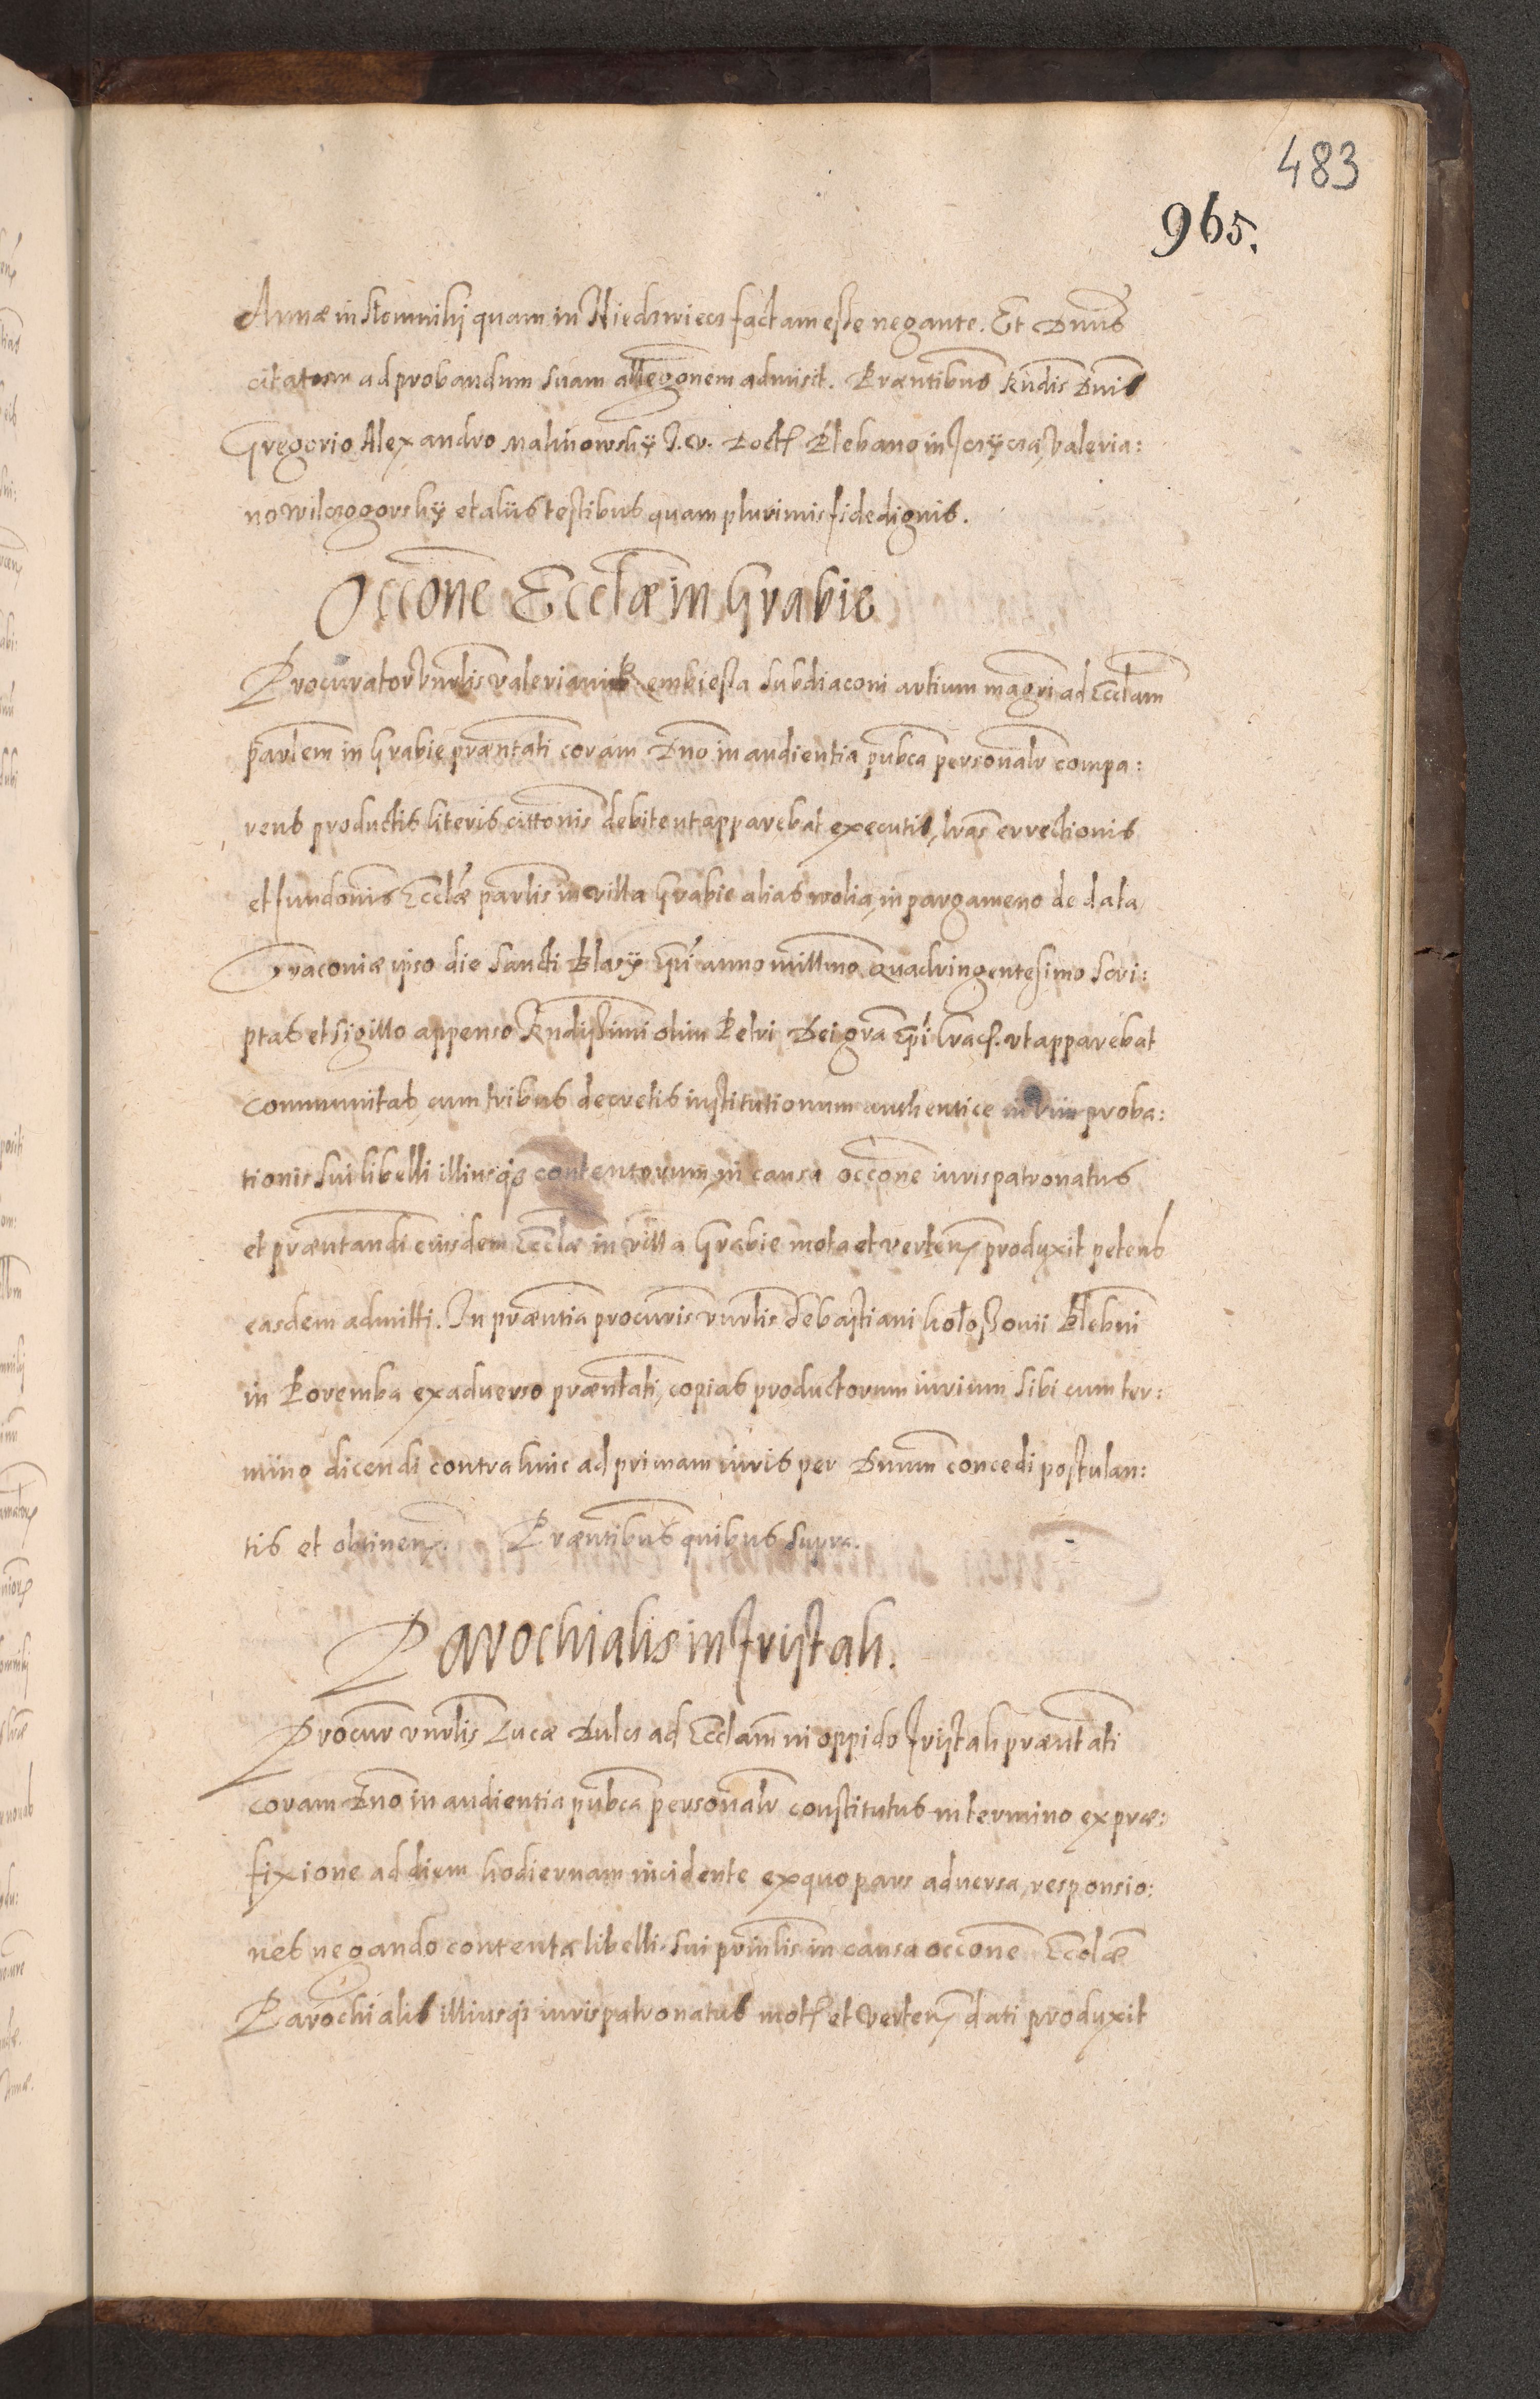 483
965.
Annæ in Slomniki quam in Niedzwiecz factam esse negante. Et Dnus
citatum ad probandum suam allegonem admisit. Præntibus Rndis Dnis
Gregorio Alexandro Malinowsky J. V. Doct Plebano in Valeria:
no Wilczogorsky et aliis testibus quam plurimis fidedignis.
Occone Ecclæ in Grabie
Procurator Vnrlis Valeriani Rembiesza Subdiaconi artium magri ad Ecclam
parlem in Grabie præntati coram Dno in audientia pubca personalr compa:
rens productis literis cittonis debite ut apparebat executis, lras errectionis
et fundonis Ecclæ parlis in villa Grabie alias wolia, in pargameno de data
Craconiæ ipso die Sancti Blasÿ Epi anno millmo Quadringentesimo Scri:
ptas et sigillo appenso Rndissimi olim Petri Dei gra Epi Crac. ut apparebat
communitas, cum tribus decretis institutionum authentice in vim proba:
tionis sui libelli illiusqȝ contentorum, in causa occone iurispatronatus
et præntandi eiusdem Ecclæ in villa Grabie mota et verten produxit petens
easdem admitti. In præntia procuris vnrlis Sebastiani Kolossonii Plebni
in Poremba ex aduerso præntati, copias productorum iurium sibi cum ter:
mino dicendi contra hinc ad primam iuris per Dnum concedi postulan:
tis et obtinen. Præntibus quibus supra.
Parochialis in Fristah.
Procur vnrlis Lucæ Dulcz ad Ecclam in oppido Fristah præntati
coram Dno in audientia pubca personalr constitutus in termino ex præ:
fixione ad diem hodiernam incidente ex quo pars aduersa, responsio:
nes negando contenta libelli sui prinlis in causa occone Ecclæ
Parochialis illiusqȝ iurispatronatus mot et verten dati produxit